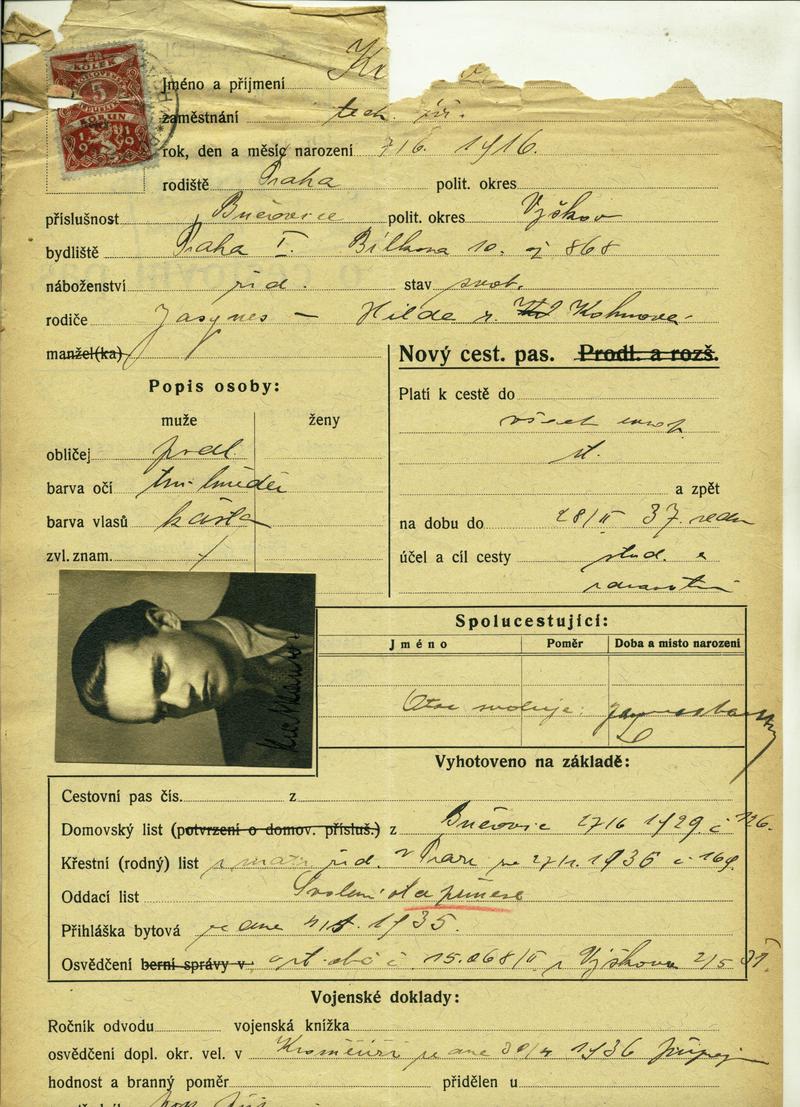 KOLEK
5
KORUN
1919
Jméno a příjmení Kr
zaměstnání tech. úř.
rok, den a měsíc narození 7/6. 1916.
rodiště Praha polit. okres
příslušnost Bučovice polit. okres Vyškov
bydliště Praha I. Bílkova 10. čj 868
náboženství žid. stav svob.
rodiče — Hilde r. Kohnová
manžel(ka)
Nový cest. pas. Prodl. a rozš.
Popis osoby:
muže ženy
obličej
barva očí tm. hnědé
barva vlasů
zvl. znam. /
Platí k cestě do
všech evrop.
st.
a zpět
na dobu do 28/II 37.
účel a cíl cesty stud. a
Spolucestující:
Jméno Poměr Doba a místo narození
Otec svoluje:
Vyhotoveno na základě:
Cestovní pas čís. z
Domovský list (potvrzení o domov. přísluš.) z Bučovic 27/6 1929 č 126.
Křestní (rodný) list z matr. žid. v Praze ze 1936 č 169.
Oddací list Svolení otce
Přihláška bytová ze dne 1935.
Osvědčení berní správy v č 15.068/II z Vyškova 2/5 31.
Vojenské doklady:
Ročník odvodu vojenská knížka
osvědčení dopl. okr. vel. v Kroměříži ze dne 30/4 1936
hodnost a branný poměr přidělen u